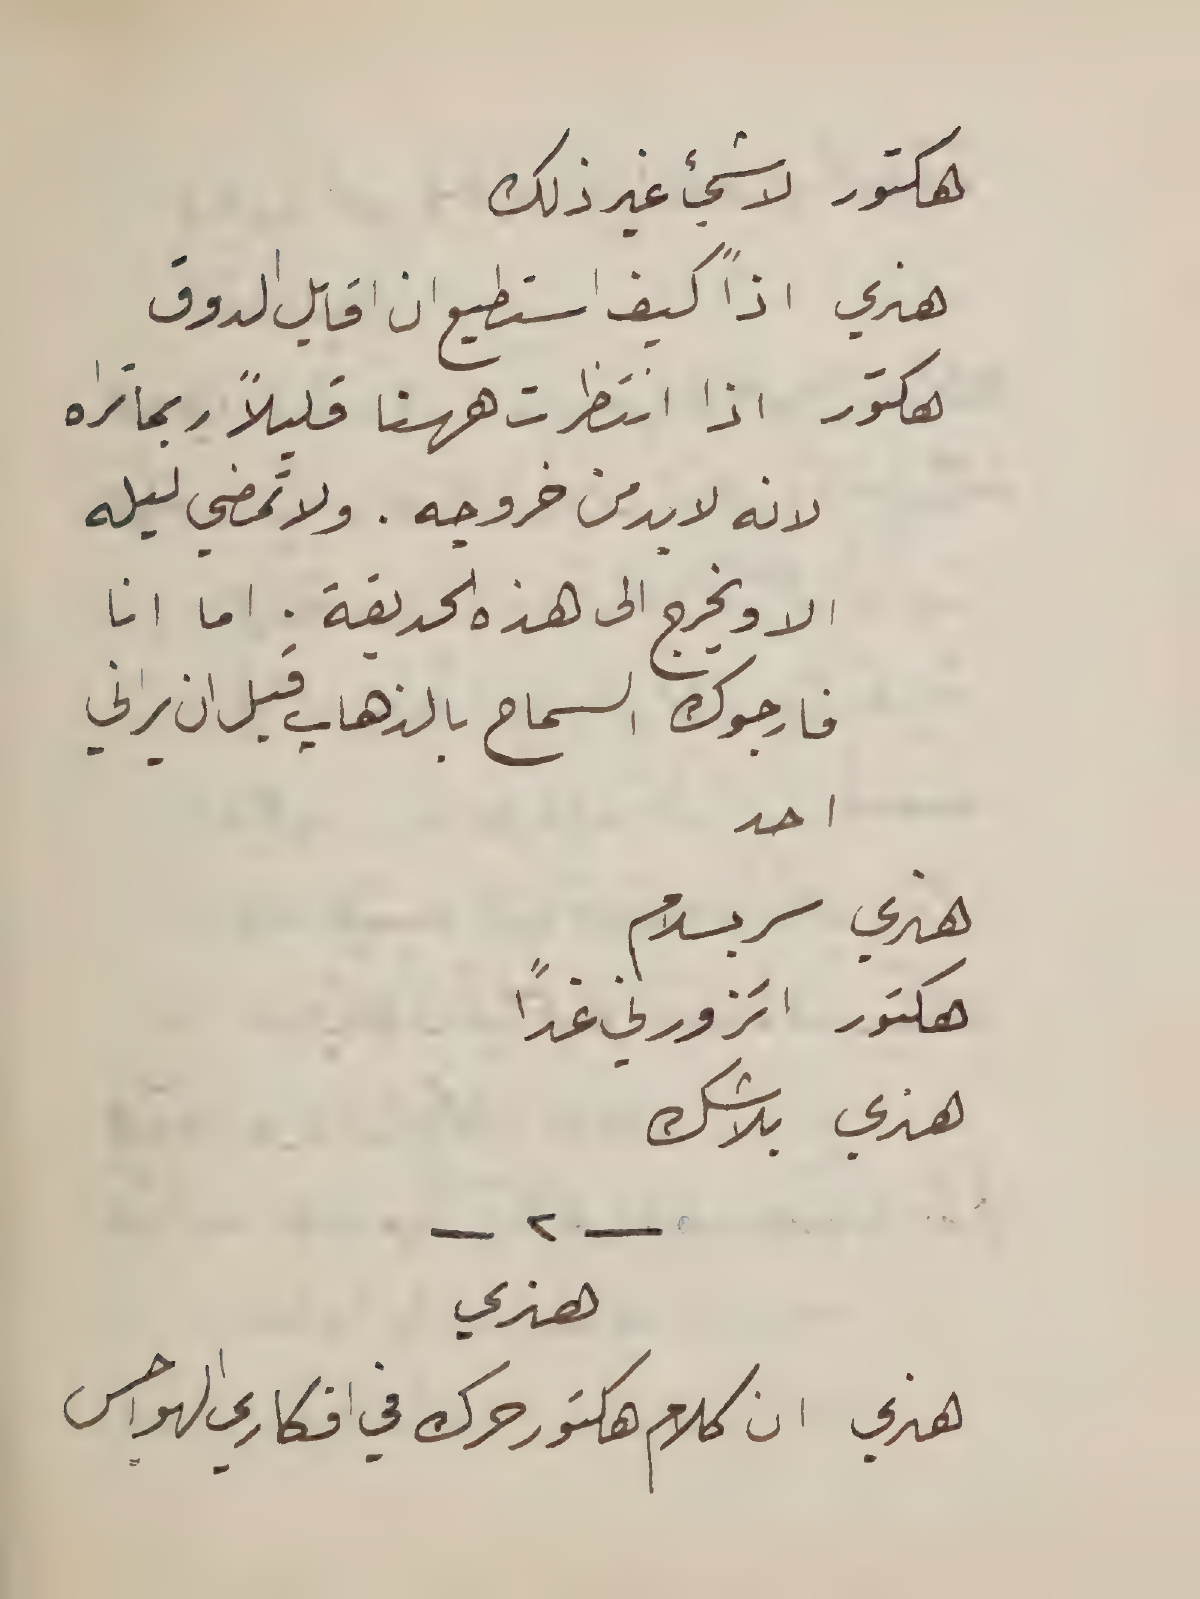 هكتور لا شيئ غير ذلك
هنري اذاً كيف استطيع ان اقابل الدوق
هكتور اذا انتظرت ههنا قليلاً ربما تراه
لانه لا بد من خروجه . ولا تمضي ليله
الا ويخرج الى هذه الحديقة . اما انا
فارجوك السماح بالذهاب قبل ان يراني
احد
هنري سر بسلام
هكتور اتزورني غداً
هنري بلا شك
— ٢ —
هنري
هنري ان كلام هكتور حرك في افكاري الهواجس